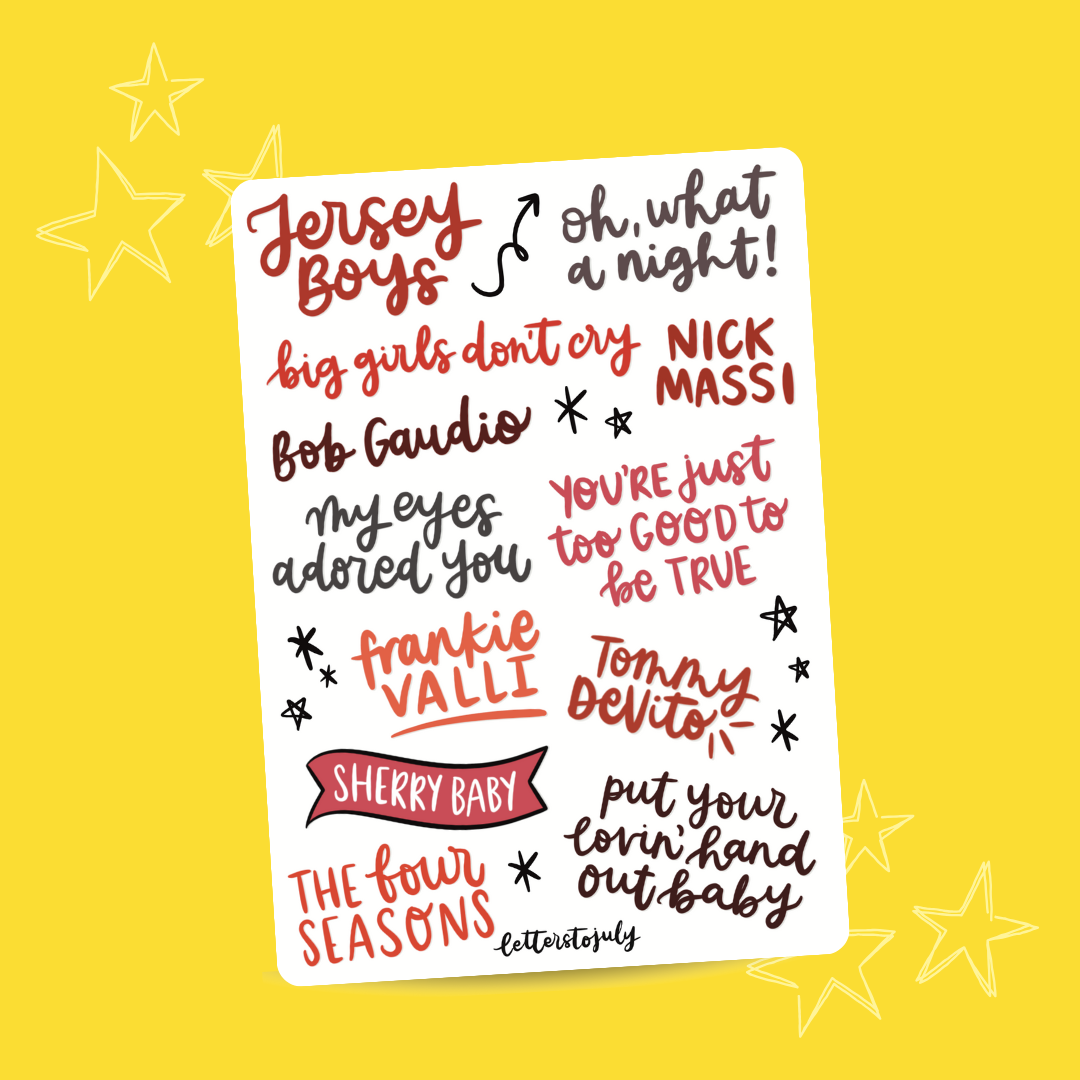 Jersey
Boys
oh, what
a night!
big girls don't cry
NICK
MASSI
Bob Gaudio
my eyes
adored you
YOU'RE just
too GOOD to
be TRUE
frankie
VALLI
Tommy
DeVito
SHERRY BABY
put your
lovin' hand
out baby
THE four
SEASONS
letterstojuly